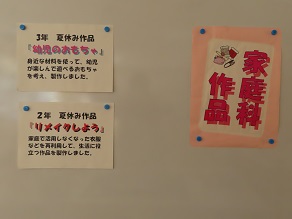 3年 夏休み作品
『幼児のおもちゃ』
身近な材料を使って、幼児
が楽しんで遊べるおもちゃ
を考え、製作しました。
2年 夏休み作品
『リメイクしよう』
家庭で活用しなくなった衣服
などを再利用して、生活に役
立つ作品を製作しました。
家庭科
作品